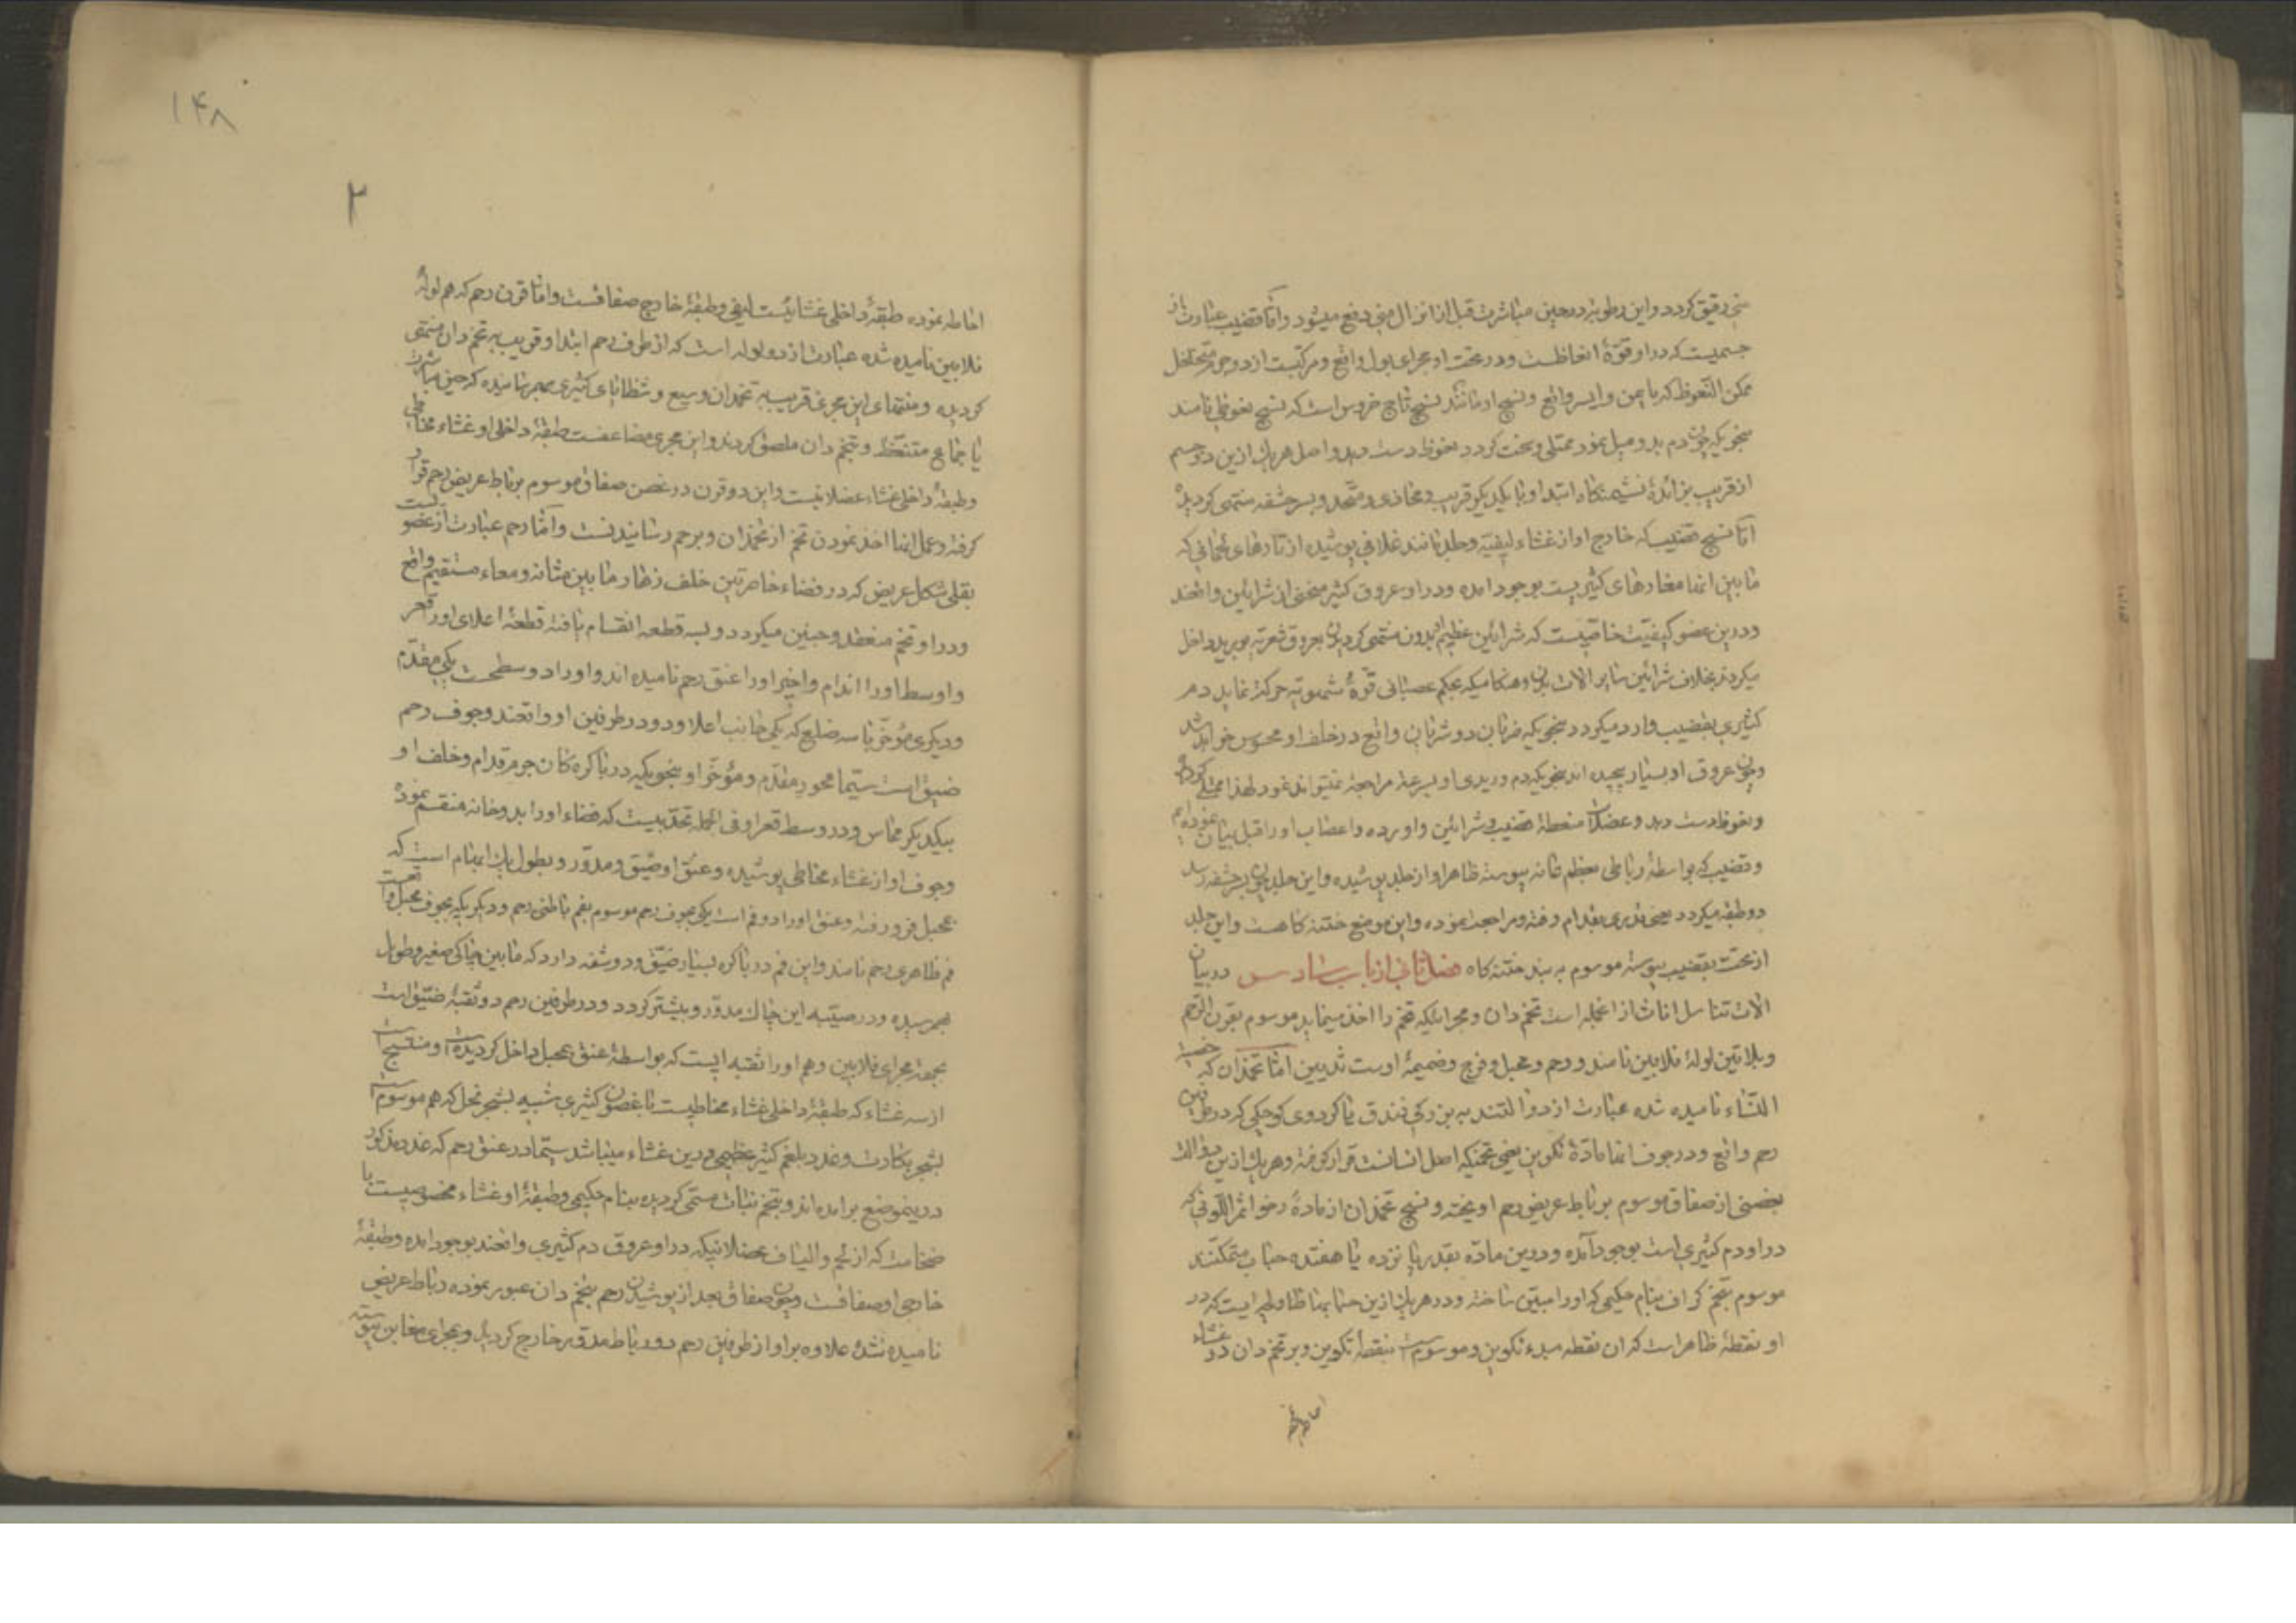 منی رقیق کردد واین رطوبة در حین مباشرت قبل از انزال منی دفع میشود واما قضیب عبارت از
جسمیست که در او قوّهٔ انعاظست ودر تحت او مجرای بول واقع ومرکبست از دو جرم متخلخل
ممکن النّعوظ که بایمن وایسر واقع ونسج او مانند نسج تاج خروس است که نسج نعوظی نامند
بنحویکه چون دم بدو میل نمود ممتلی وسخت کردد نعوظ دست دهد واصل هریک ازین دو جسم
از قریب بزائدهٔ نشیمنکاه ابتدا وبا یکدیکر قریب ومحاذی ومتّحد وبسر حشفه منتهی کردیده
امّا نسج قضیب که خارج او از غشاء لیفیّه وجلد مانند غلافی پوشیده از تارهای لحمانی که
مابین انها مغارهای کثیریست بوجود امده ودر او عروق کثیر منحنی از شرائین واقعند
ودرین عضو کیفیّت خاصّیست که شرائین عظیم بدون منتهی کردیدن بعروق شعریّه بورید داخل
میکردند بخلاف شرائین سایر الات بدن وهنکامیکه بحکم عصبانی قوّهٔ شهویّه حرکة نماید دم
کثیری بقضیب وارد میکردد بنحویکه ضربان دو شریان واقع در خلف او محسوس خواهد شد
وچون عروق او بسیار پیچیده اند بنحویکه دم وریدی او بسرعة مراجعة نمیتواند نمود لهذا ممتلی کردد
ونعوظ دست دهد وعضلات منعظهٔ قضیب وشرائین واورده واعصاب اورا قبل بیان نموده ایم
وقضیب که بواسطهٔ رباطی بعظم عانه پیوسته ظاهر او از جلد پوشیده واین جلد چون بسر حشفه رسد
دو طبقه میکردد یعنی قدری بقدام رفته ومراجعه نموده واین موضع ختنه کاهست واین جلد
از تحت بقضیب پیوسته موسوم به بند ختنه کاه فصل ثانی از باب سادس در بیان
الات تناسل اناث از انجمله است تخم دان ومجرائیکه تخم را اخذ مینماید موسوم بقرن الرّحم
وبلاتین لولهٔ فلابین نامند ورحم ومهبل وفرج وضمیمهٔ اوست ثدیین امّا تخمدان که خصیة
النّساء نامیده شده عبارت از دو التند به بزرکی فندق یا کردوی کوچکی که در طرفین
رحم واقع ودر جوف انها مادّهٔ تکوین یعنی تخمیکه اصل انسانست قرار کرفته وهریک ازین دو الت
بغصنی از صفاق موسوم برباط عریض رحم اویخته ونسج تخمدان از مادهٔ رخو احمر اللّونی که
در او دم کثیری است بوجود آمده ودرین مادّه بقدر پانزده یا هفتده حباب متمکّنند
موسوم بتخم کراف بنام حکیمی که اورا مبیّن ساخته ودر هریک ازین حبابها ماوایست که در
او نقطهٔ ظاهر است که ان نقطه مبدء تکوین وموسوم است بنقطهٔ تکوین وبر تخم دان دو غشاء
احاطه نموده
۱۴۸
۲
احاطه نموده طبقهٔ داخلی غشائیست لیفی وطبقهٔ خارج صفاقست وامّا قرن رحم که هم لولهٔ
فلابین نامیده شده عبارت از دو لوله است که از طرف رحم ابتدا وقریب به تخم دان منتهی
کردیده ومنتهای این مجری قریب به تخمدان وسیع وشظایای کثیری بهم رسانیده که حین مباشرت
یا جماع متنعّظ وبتخم دان ملصق کردند واین مجری مضاعفست طبقهٔ داخلی او غشاء مخاطی
وطبقهٔ داخلی غشاء عضلانیست واین دو قرن در غصن صفاق موسوم برباط عریض رحم قرار
کرفته وعمل انها اخذ نمودن تخم از تخمدان وبرحم رسانیدنست وامّا رحم عبارت از عضویست
بقلی شکل عریض که در فضاء خاصرتین خلف زهار مابین مثانه ومعاء مستقیم واقع
ودر او تخم منعقد وجنین میکردد وبسه قطعه انقسام یافته قطعهٔ اعلای اورا قعر
واوسط اورا اندام واخیر اورا عنق رحم نامیده اند واورا دو سطحست یکی مقدّم
ودیکری مؤخّر با سه ضلع که یکی جانب اعلا ودو در طرفین او واقعند وجوف رحم
ضیق است سیّما محور مقدّم ومؤخّر او بنحویکه در باکره کان جرم قدام وخلف او
بیکدیکر مماس ودر وسط قعر او فی الجمله تحدّبیست که فضاء اورا بدو خانه منقسم نموده
وجوف او از غشاء مخاطی پوشیده وعنق او ضیّق ومدوّر وبطول یک ابهام است که
بمهبل فرو رفته وعنق اورا دو فم است یکی بجوف رحم موسوم بفم باطنی رحم ودیکریکه بجوف مهبل واقعست
فم ظاهری رحم نامند واین فم در باکره بسیار ضیّق ودو شفه دارد که مابین چاکی صغیر وطویل
بهم رسیده ودر صیّبه این چاک مدوّر وبیشتر کردد ودر طرفین رحم دو ثقبهٔ ضیّق است
بجهة مجرای فلابین وهم اورا ثقبه ایست که بواسطهٔ عنق بمهبل داخل کردیده است ومنتسج است
از سه غشاء که طبقهٔ داخلی غشاء مخاطیست با غصون کثیری شبیه بشجر نخل که هم موسوم است
بشجر بکارت وغدد بلغم کثیر عظیمی درین غشاء میباشد سیّما در عنق رحم که غدد مذکور
درینموضع برامده اند وبتخم نبات مسمّی کردیده بنام حکیمی وطبقهٔ او غشاء مخصوصیست با
ضخامت که از لحم والیاف عضلانیکه در او عروق دم کثیری واقعند بوجود امده وطبقهٔ
خارجی او صفاقست وچون صفاق بعد از پوشیدن رحم بتخم دان عبور نموده رباط عریض
نامیده شده علاوه بر او از طرفین رحم دو رباط مدوّر خارج کردیده وبمجرای مغابن